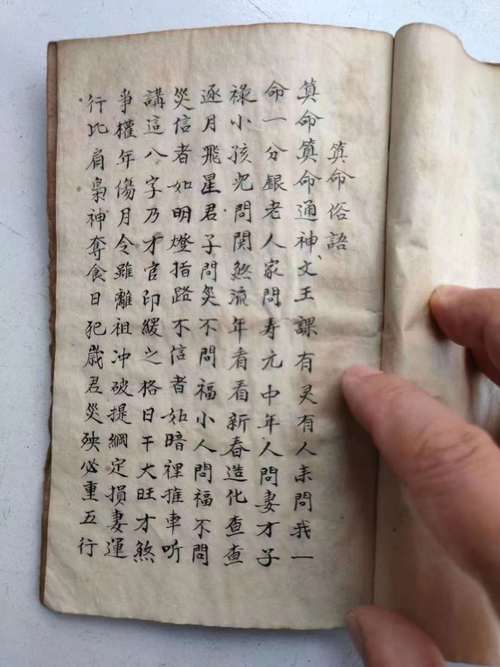 算命俗語
算命算命通神文王課有灵有人来問我一
命一分銀老人家問寿元中年人問妻才子
禄小孩児問関煞流年看看新春造化查查
逐月飛星君子問災不問福小人問福不問
災信者如明燈指路不信者如暗裡推車听
講這八字乃才官印綬之格日干大旺才煞
爭權年傷月令雖離祖冲破提綱定損妻運
行比肩梟神奪食日犯歲君災殃必重五行